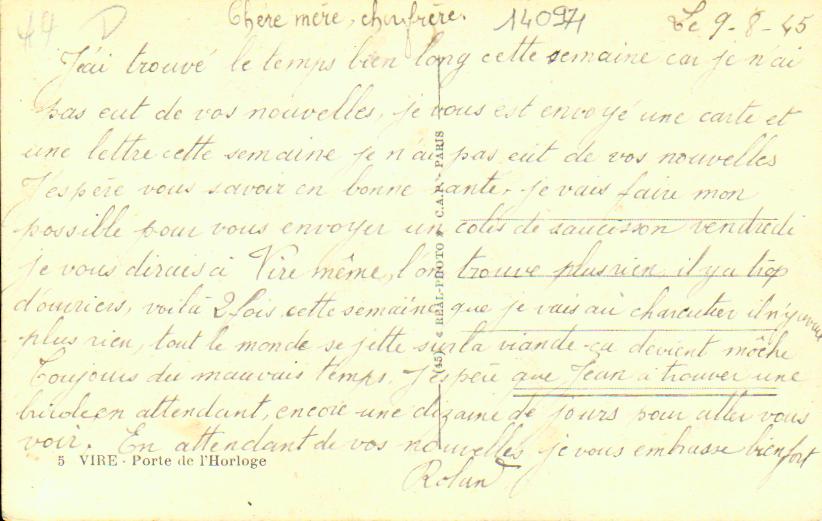 49 D
Chère mère, cher frère.
14097
Le 9-8-45
J'ai trouvé le temps bien long cette semaine car je n'ai
pas eut de vos nouvelles, je vous est envoyé une carte et
une lettre cette semaine je n'ai pas eut de vos nouvelles
J'espère vous savoir en bonne santé. je vais faire mon
possible pour vous envoyer un colis de saucisson vendredi
je vous dirais à Vire même, l'on trouve plus rien, il y a trop
d'ouvriers, voilà 2 fois cette semaine que je vais au charcutier il n'y avait
plus rien, tout le monde se jette sur la viande ça devient môche
Toujours du mauvais temps. J'espère que Jean a trouver une
en attendant, encore une dizaine de jours pour aller vous
voir. En attendant de vos nouvelles je vous embrasse bien fort
Roland
5 VIRE - Porte de l'Horloge
(45) « REAL-PHOTO » C.A.P. - PARIS